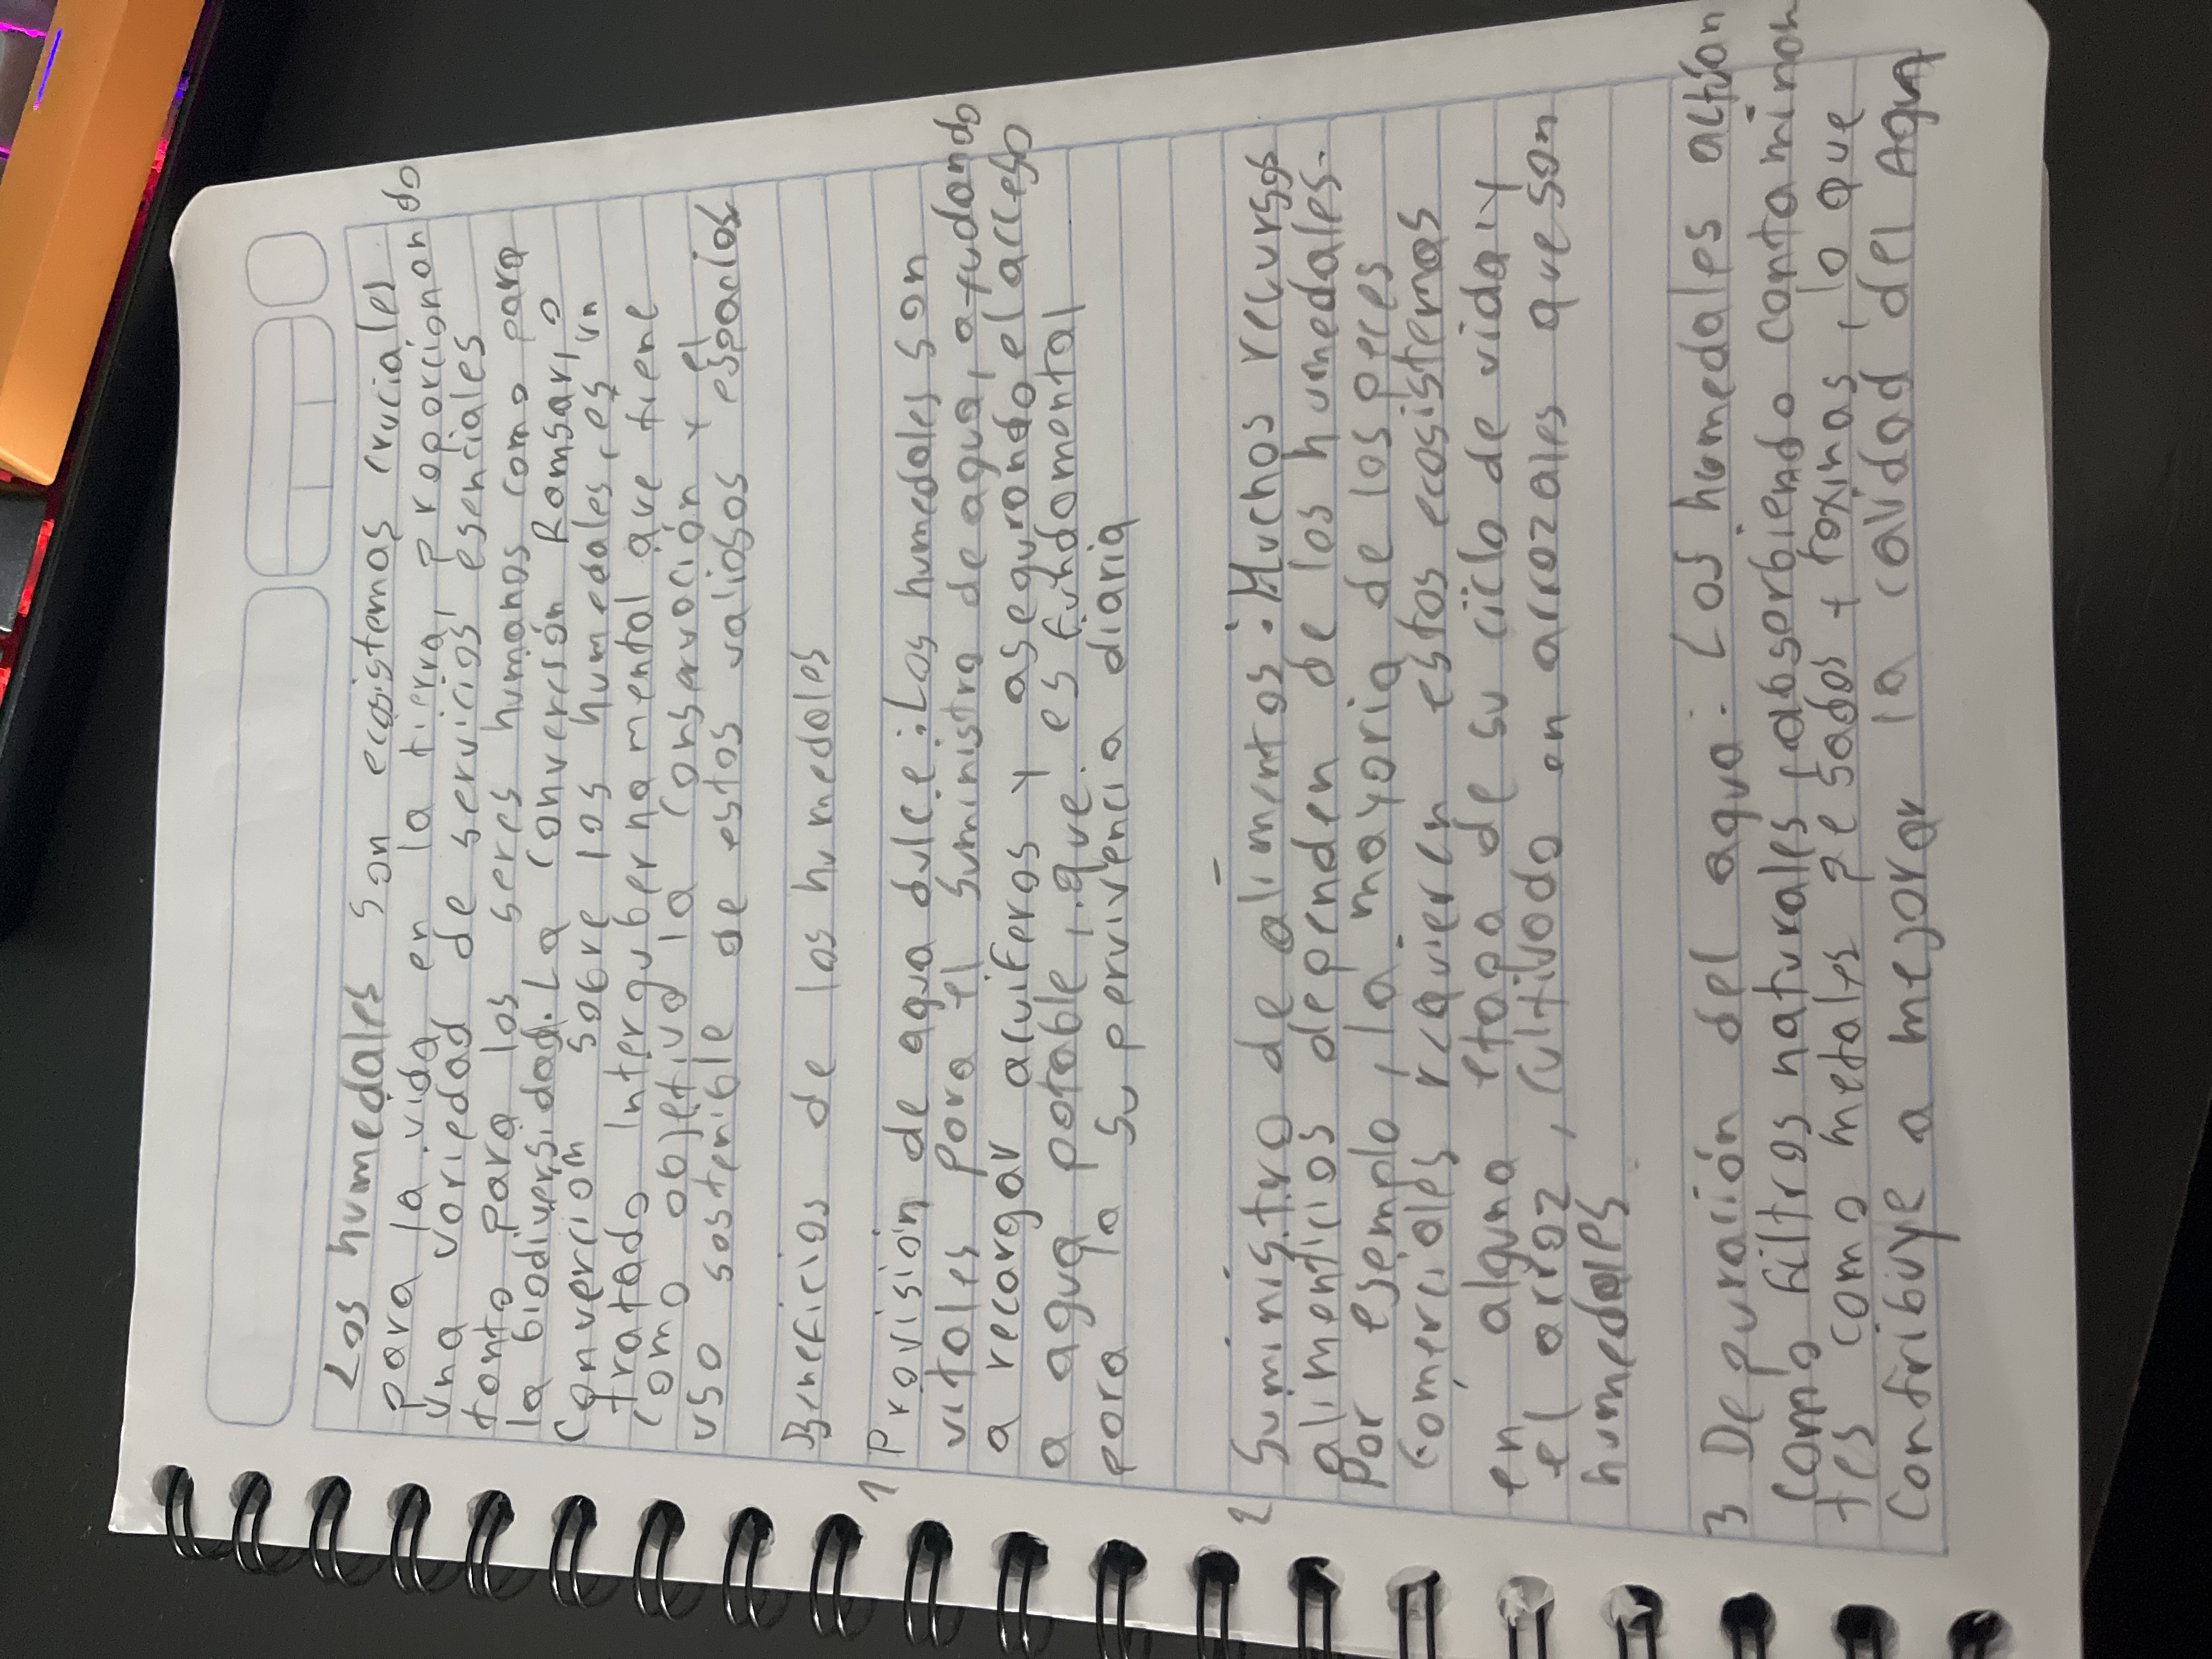 Los humedales son ecosistemas cruciales
para la vida en la tierra, proporcionando
una variedad de servicios esenciales
tanto para los seres humanos como para
la biodiversidad. La converción Ramsar, o
converción sobre los humedales, es un
tratado Intergubernamental que tiene
como objetivo la conservación y el
uso sostenible de estos valiosos espacios
Beneficios de los humedales
1 Provisión de agua dulce: Los humedales son
vitales para el suministro de agua, ayudando
a recargar acuiferos y asegurando el acceso
a agua potable, que es fundamental
para la supervivencia diaria
2 Suministro de alimentos: Muchos recursos
alimenticios dependen de los humedales.
Por esemplo, la mayoria de los peces
comerciales requieren estos ecosistemas
en alguna etapa de su ciclo de vida, y
el arroz, cultivado en arrozales que son
humedales
3 Depuración del agua: Los humedales altúan
como filtros naturales, absorbiendo contaminan
tes como metales pesados y toxinas, lo que
contribuye a mejorar la calidad del Agua